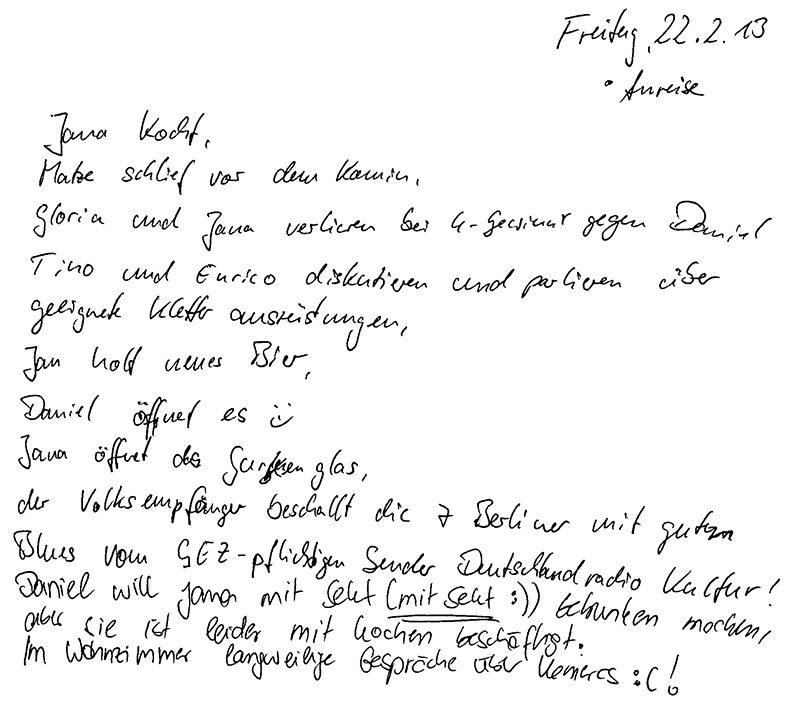 Freitag, 22.2.13
• Anreise
Jana kocht,
Matze schlief vor dem Kamin,
Gloria und Jana verlieren bei 4-Gewinnt gegen Daniel
Tino und Enrico diskutieren und parlieren über
geeignete Kletterausrüstungen,
Jan holt neues Bier,
Daniel öffnet es ü
Jana öffnet das Gurkenglas,
der Volksempfänger beschallt die 7 Berliner mit gutem
Blues vom GEZ-pflichtigen Sender Deutschlandradio Kultur!
Daniel will Jana mit Sekt (mit Sekt :)) betrunken machen,
aber sie ist leider mit kochen beschäftigt.
Im Wohnzimmer langweilige Gespräche über Kameras :( !